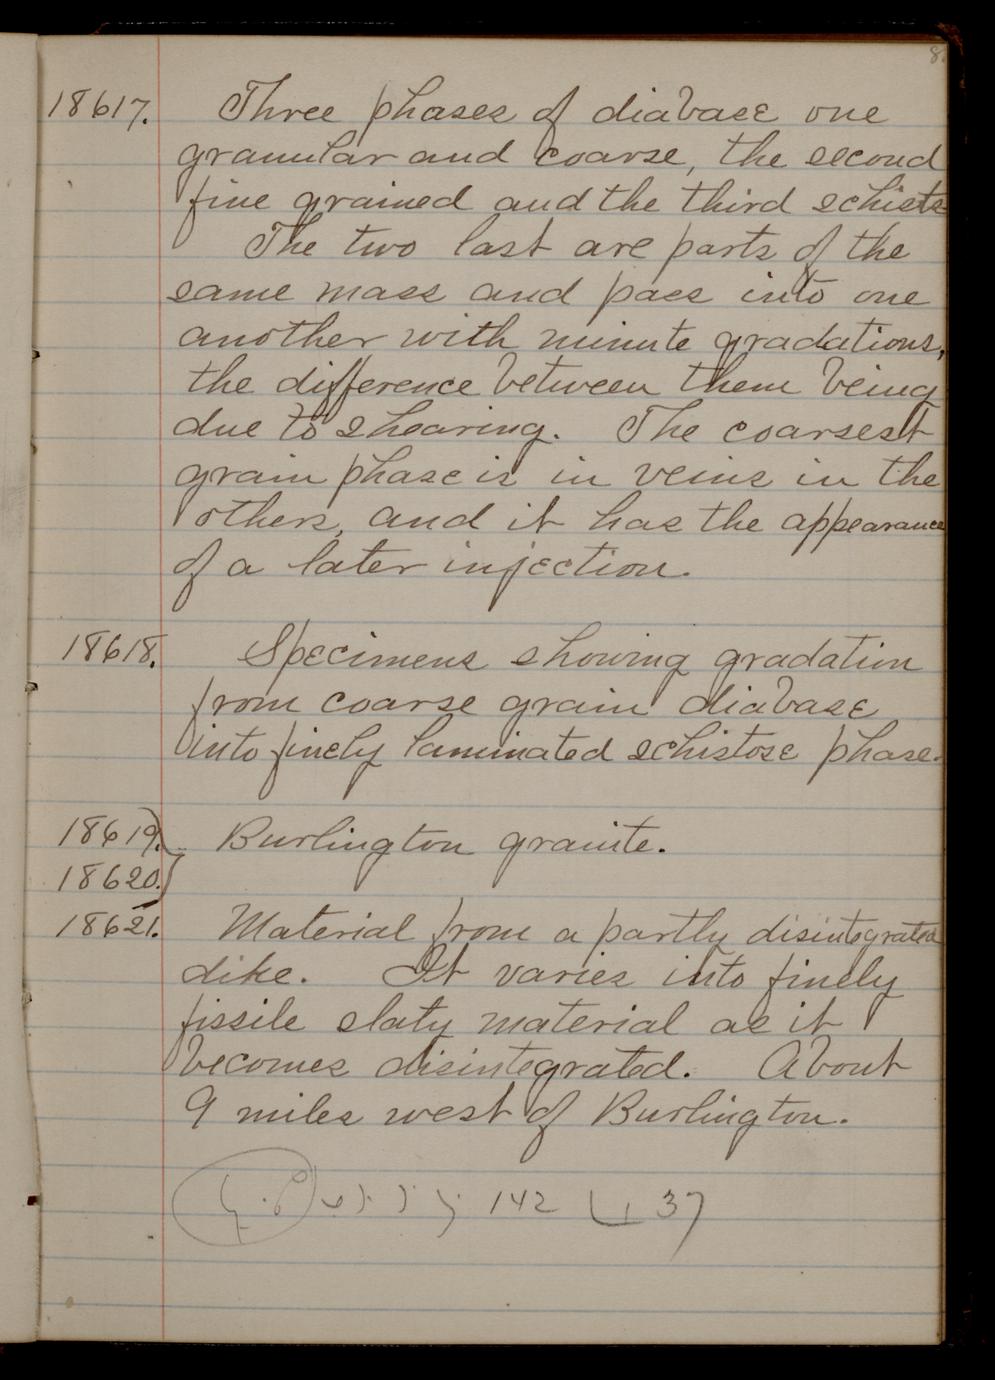 8.
18617. Three phases of diabase one
granular and coarse, the second
fine grained and the third schists
The two last are parts of the
same mass and pass into one
another with minute gradations,
the difference between them being
due to shearing. The coarsest
grain phase is in veins in the
others, and it has the appearance
of a later injection.
18618. Specimens showing gradation
from coarse grain diabase
into finely laminated schistose phase.
18619. Burlington granite.
18620.
18621. Material from a partly disintegrated
dike. It varies into finely
fissile slaty material as it
becomes disintegrated. About
9 miles west of Burlington.
142 37